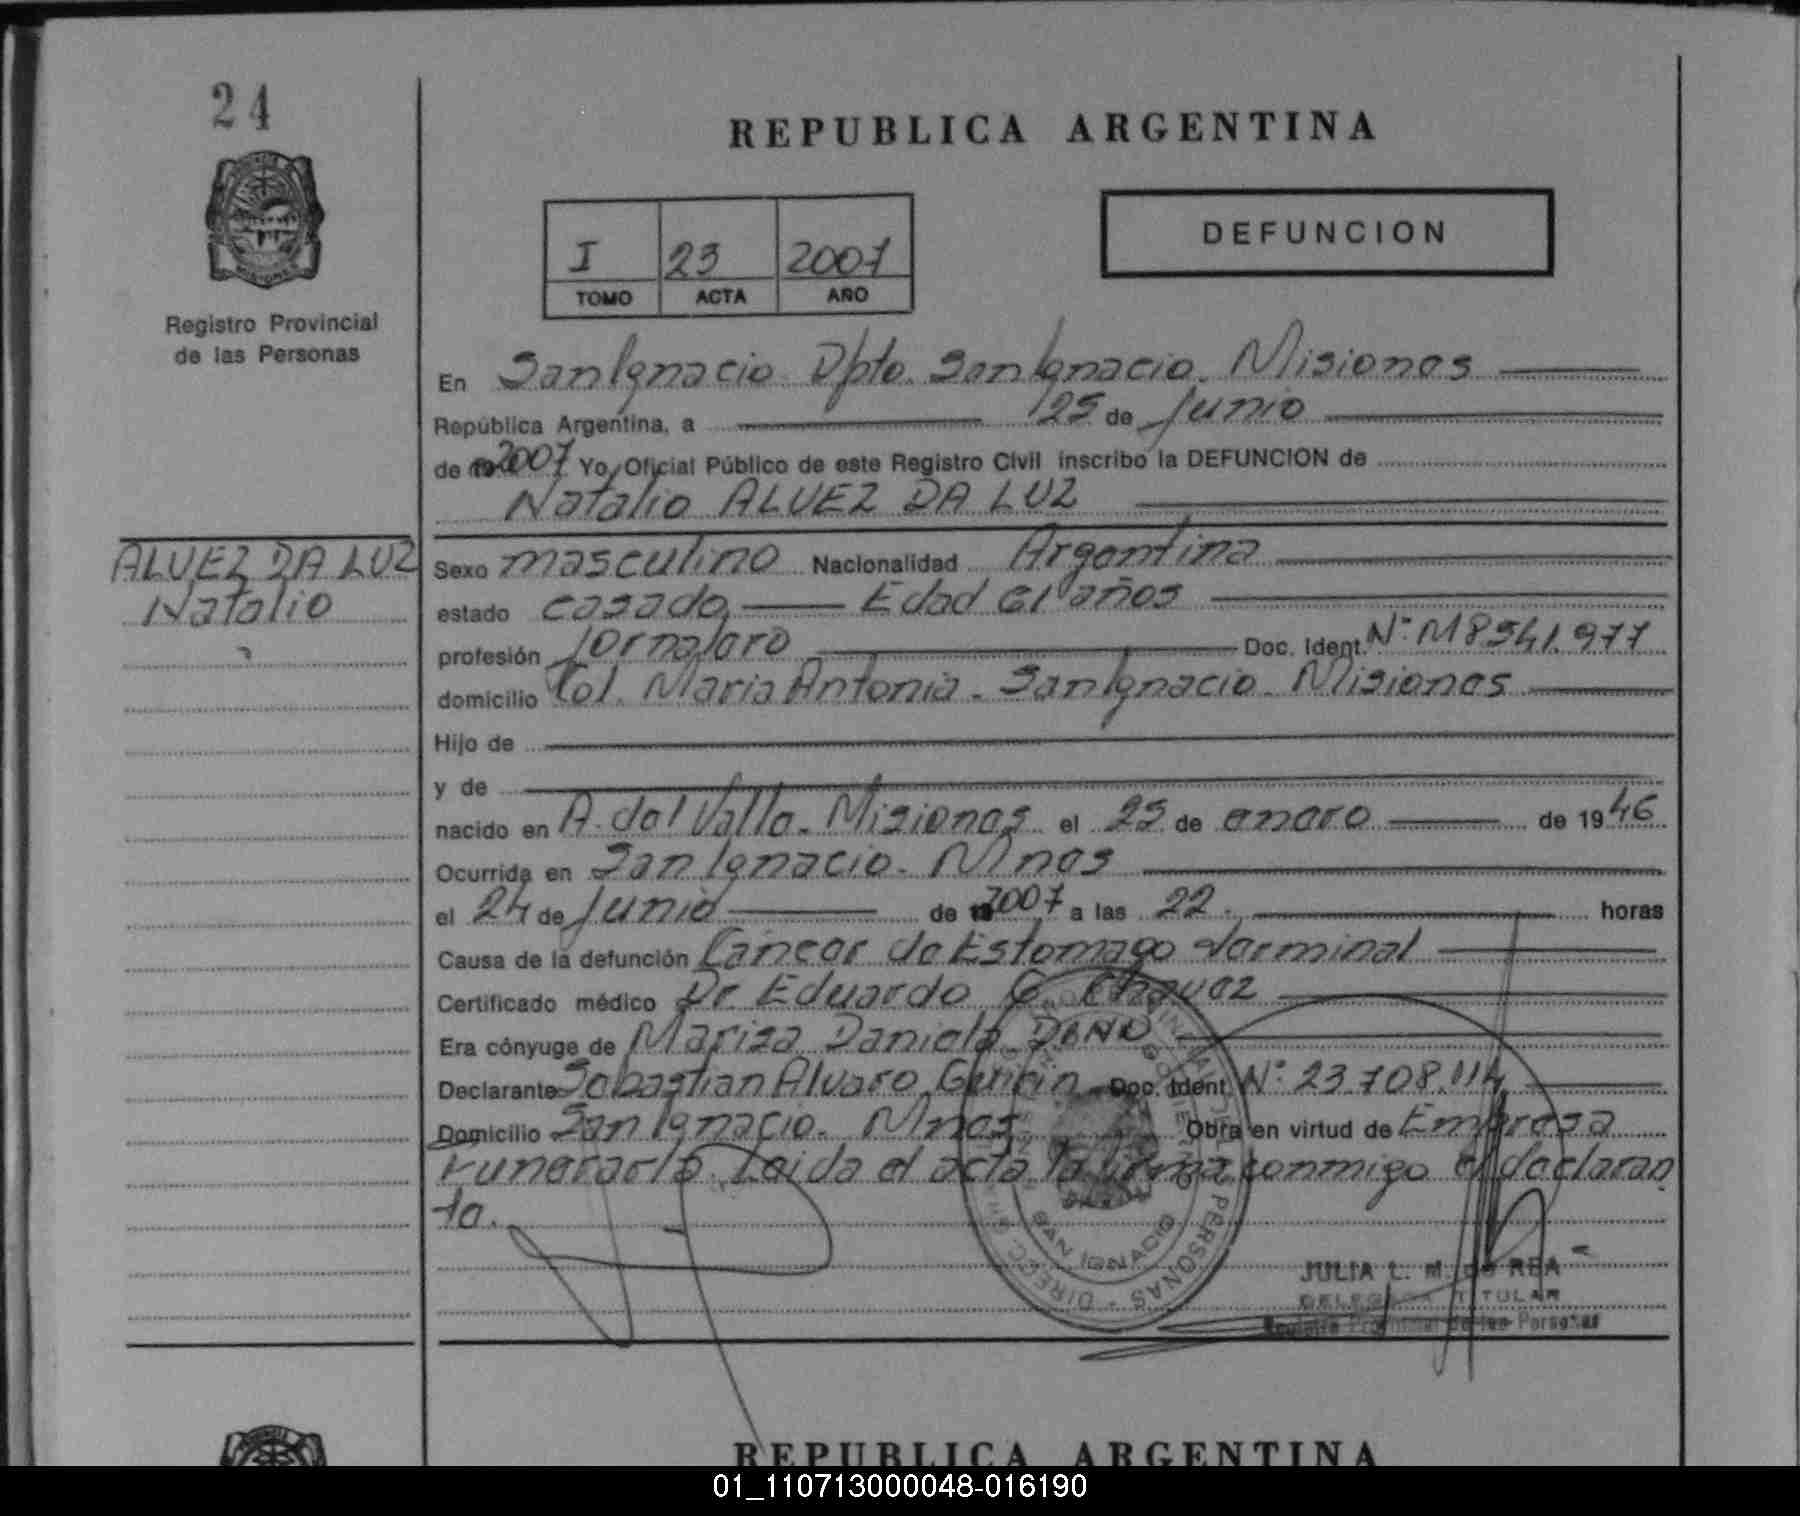 24
REPUBLICA ARGENTINA
I 23 2007
TOMO ACTA AÑO
DEFUNCION
MISIONES
Registro Provincial
de las Personas
En San Ignacio Dpto. San Ignacio. Misiones
República Argentina, a 25 de Junio
de 2007 Yo, Oficial Público de este Registro Civil inscribo la DEFUNCION de
Natalio ALVEZ DA LUZ
ALVEZ DA LUZ
Natalio
Sexo masculino Nacionalidad Argentina
estado casado Edad 61 años
profesión Jornalero Doc. Ident. Nº M8541.977
domicilio Col. Maria Antonia. San Ignacio. Misiones
Hijo de
y de
nacido en A. del Valle. Misiones el 23 de enero de 1946
Ocurrida en San Ignacio. Mnes
el 24 de Junio de 2007 a las 22. horas
Causa de la defunción Cáncer de Estomago terminal
Certificado médico Dr Eduardo G. Chavez
Era cónyuge de Mariza Daniela
Declarante Sebastian Alvaro Doc. Ident. Nº 23.708.114
Domicilio San Ignacio. Mnes Obra en virtud de Empresa
Funeraria. Leida el acta la firma conmigo el declaran
te.
PERSONAS - DIREC.
SAN IGNACIO
JULIA L. M. de REA
DELEGADA TITULAR
Registro Provincial de las Personas
REPUBLICA ARGENTINA
01_110713000048-016190